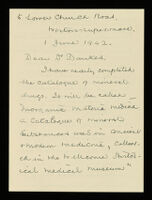 5 Lower Church Road,
Weston-super-mare.
1 June 1942.
Dear Dr Daukes
I have nearly completed
the catalogue of mineral
drugs. It will be called
"Inorganic Materia Medica
a Catalogue of Mineral
Substances used in Ancient
& Modern Medicine, Collect-
ed in the Wellcome Histor-
ical Medical Museum"